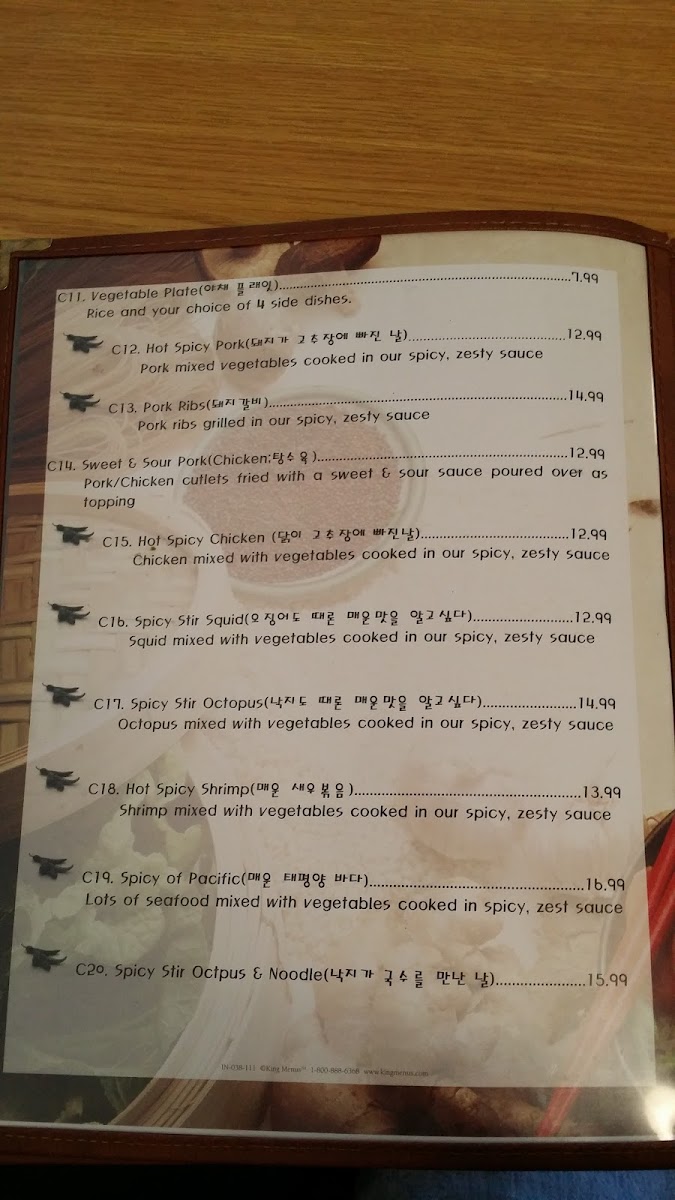 C11. Vegetable Plate(야채 플래잇)..........7.99
Rice and your choice of 4 side dishes.
C12. Hot Spicy Pork(돼지가 고추장에 빠진 날)..........12.99
Pork mixed vegetables cooked in our spicy, zesty sauce
C13. Pork Ribs(돼지갈비)..........14.99
Pork ribs grilled in our spicy, zesty sauce
C14. Sweet & Sour Pork(Chicken;탕수육)..........12.99
Pork/Chicken cutlets fried with a sweet & sour sauce poured over as
topping
C15. Hot Spicy Chicken (닭이 고추장에 빠진날)..........12.99
Chicken mixed with vegetables cooked in our spicy, zesty sauce
C16. Spicy Stir Squid(오징어도 때론 매운맛을 알고싶다)..........12.99
Squid mixed with vegetables cooked in our spicy, zesty sauce
C17. Spicy Stir Octopus(낙지도 때론 매운맛을 알고싶다)..........14.99
Octopus mixed with vegetables cooked in our spicy, zesty sauce
C18. Hot Spicy Shrimp(매운 새우볶음)..........13.99
Shrimp mixed with vegetables cooked in our spicy, zesty sauce
C19. Spicy of Pacific(매운 태평양 바다)..........16.99
Lots of seafood mixed with vegetables cooked in spicy, zest sauce
C20. Spicy Stir Octpus & Noodle(낙지가 국수를 만난 날)..........15.99
IN-038-111 ©King Menus™ 1-800-888-6368 www.kingmenus.com